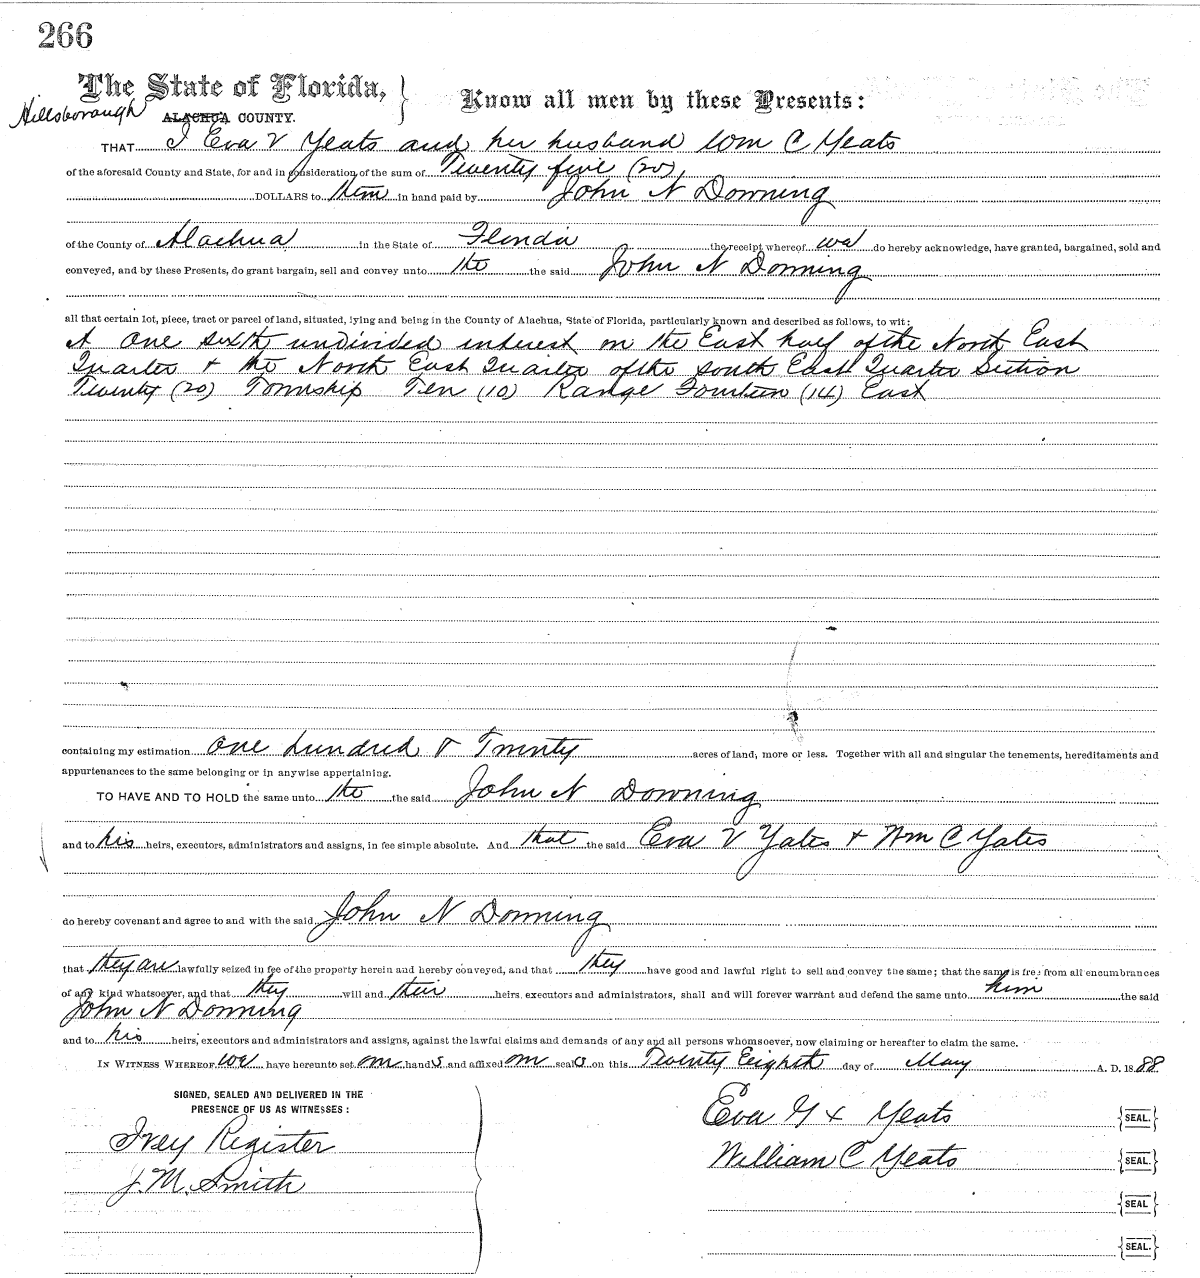 266
The State of Florida,
Hillsborough
ALACHUA COUNTY.
Know all men by these Presents:
THAT I Eva V Yeats and her husband Wm C Yeats
of the aforesaid County and State, for and in consideration of the sum of Twenty five (25)
DOLLARS to them in hand paid by John N Downing
of the County of Alachua in the State of Florida the receipt whereof we do hereby acknowledge, have granted, bargained, sold and
conveyed, and by these Presents, do grant bargain, sell and convey unto the the said John N Downing
all that certain lot, piece, tract or parcel of land, situated, lying and being in the County of Alachua, State of Florida, particularly known and described as follows, to wit:
A One sixth undivided interest on the East half of the North East
Quarter + the North East Quarter of the South East Quarter Section
Twenty (20) Township Ten (10) Range Fourteen (14) East
containing my estimation One hundred & Twenty acres of land, more or less. Together with all and singular the tenements, hereditaments and
appurtenances to the same belonging or in anywise appertaining.
TO HAVE AND TO HOLD the same unto the the said John N Downing
and to his heirs, executors, administrators and assigns, in fee simple absolute. And that the said Eva V Yates + Wm C Yates
do hereby covenant and agree to and with the said John N Downing
that they are lawfully seized in fee of the property herein and hereby conveyed, and that they have good and lawful right to sell and convey the same; that the same is free from all encumbrances
of any kind whatsoever, and that they will and their heirs, executors and administrators, shall and will forever warrant and defend the same unto him the said
John N Downing
and to his heirs, executors and administrators and assigns, against the lawful claims and demands of any and all persons whomsoever, now claiming or hereafter to claim the same.
IN WITNESS WHEREOF we have hereunto set our hands and affixed our seals on this Twenty Eighth day of May A. D. 1888
SIGNED, SEALED AND DELIVERED IN THE
PRESENCE OF US AS WITNESSES:
Ivey Register
J. M. Smith
Eva + Yeats SEAL.
William C Yeats SEAL.
SEAL
SEAL.